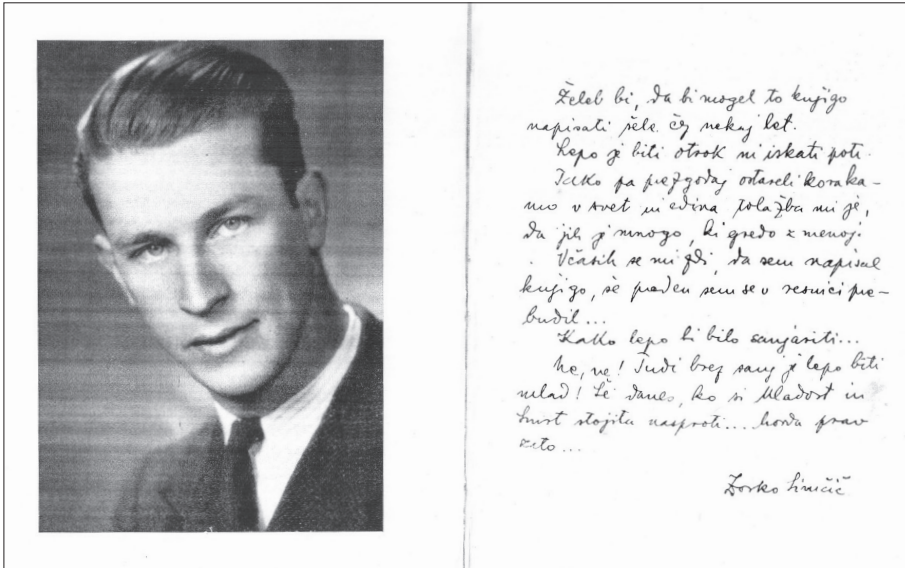 Želel bi, da bi mogel to knjigo
napisati šele čez nekaj let.
Lepo je biti otrok in iskati poti.
Tako pa prezgodaj ostareli koraka-
mo v svet in edina tolažba mi je,
da jih je mnogo, ki gredo z menoj.
Včasih se mi zdi, da sem napisal
knjigo, še preden sem se v resnici pre-
budil...
Kako lepo bi bilo sanjariti...
Ne, ne! Tudi brez sanj je lepo biti
mlad! Še danes, ko si Mladost in
Smrt stojita nasproti... morda prav
zato...
Zorko Simčič